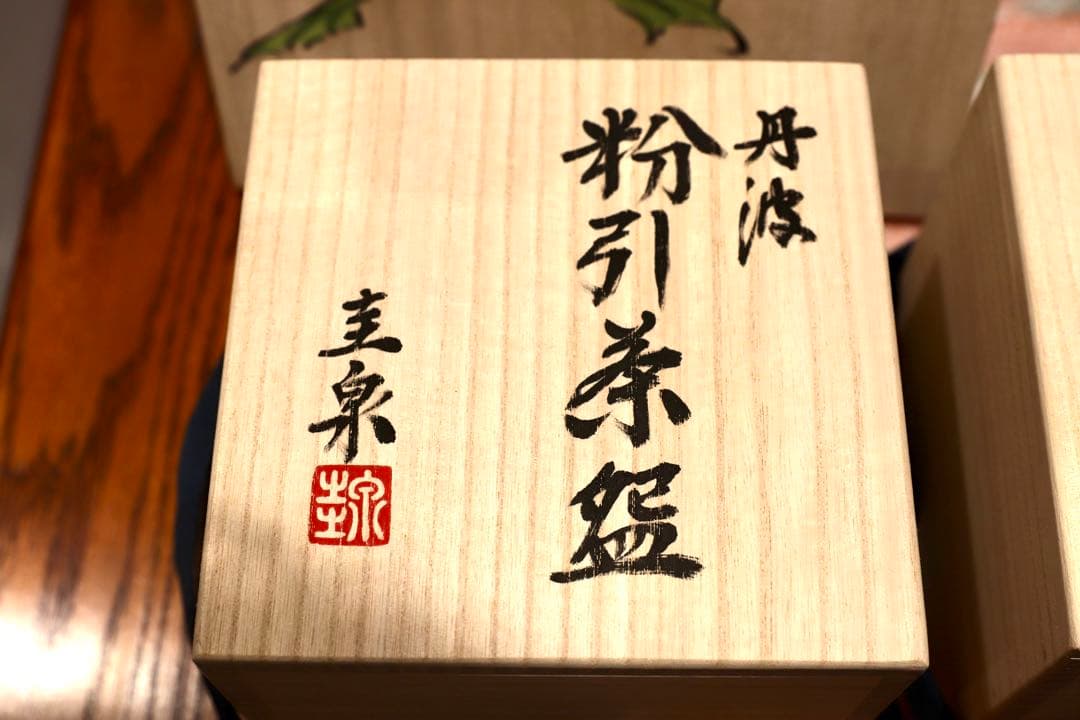 丹波
粉引茶盌
圭泉
圭泉